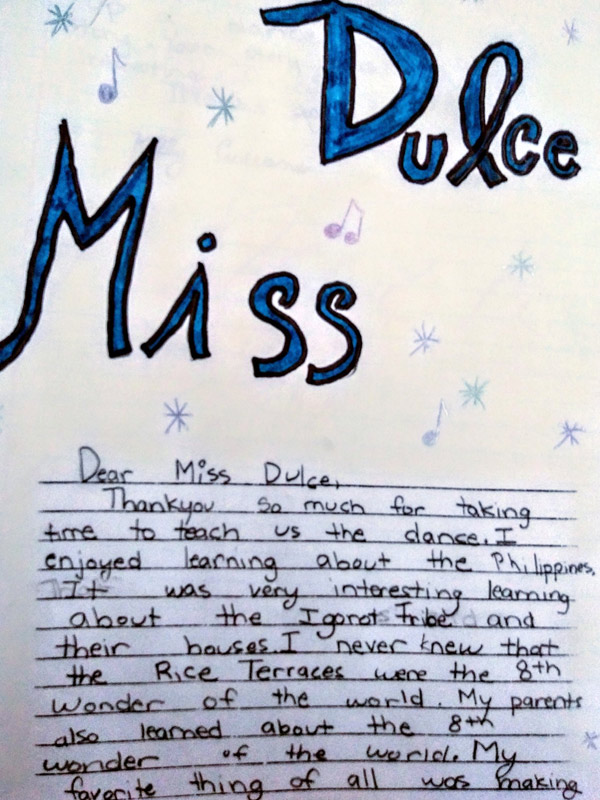 Miss
Dulce
Dear Miss Dulce,
Thankyou so much for taking
time to teach us the dance. I
enjoyed learning about the Philippines.
It was very interesting learning
about the Igorot Tribe and
their houses. I never knew that
the Rice Terraces were the 8th
wonder of the world. My parents
also learned about the 8th
wonder of the world. My
favorite thing of all was making